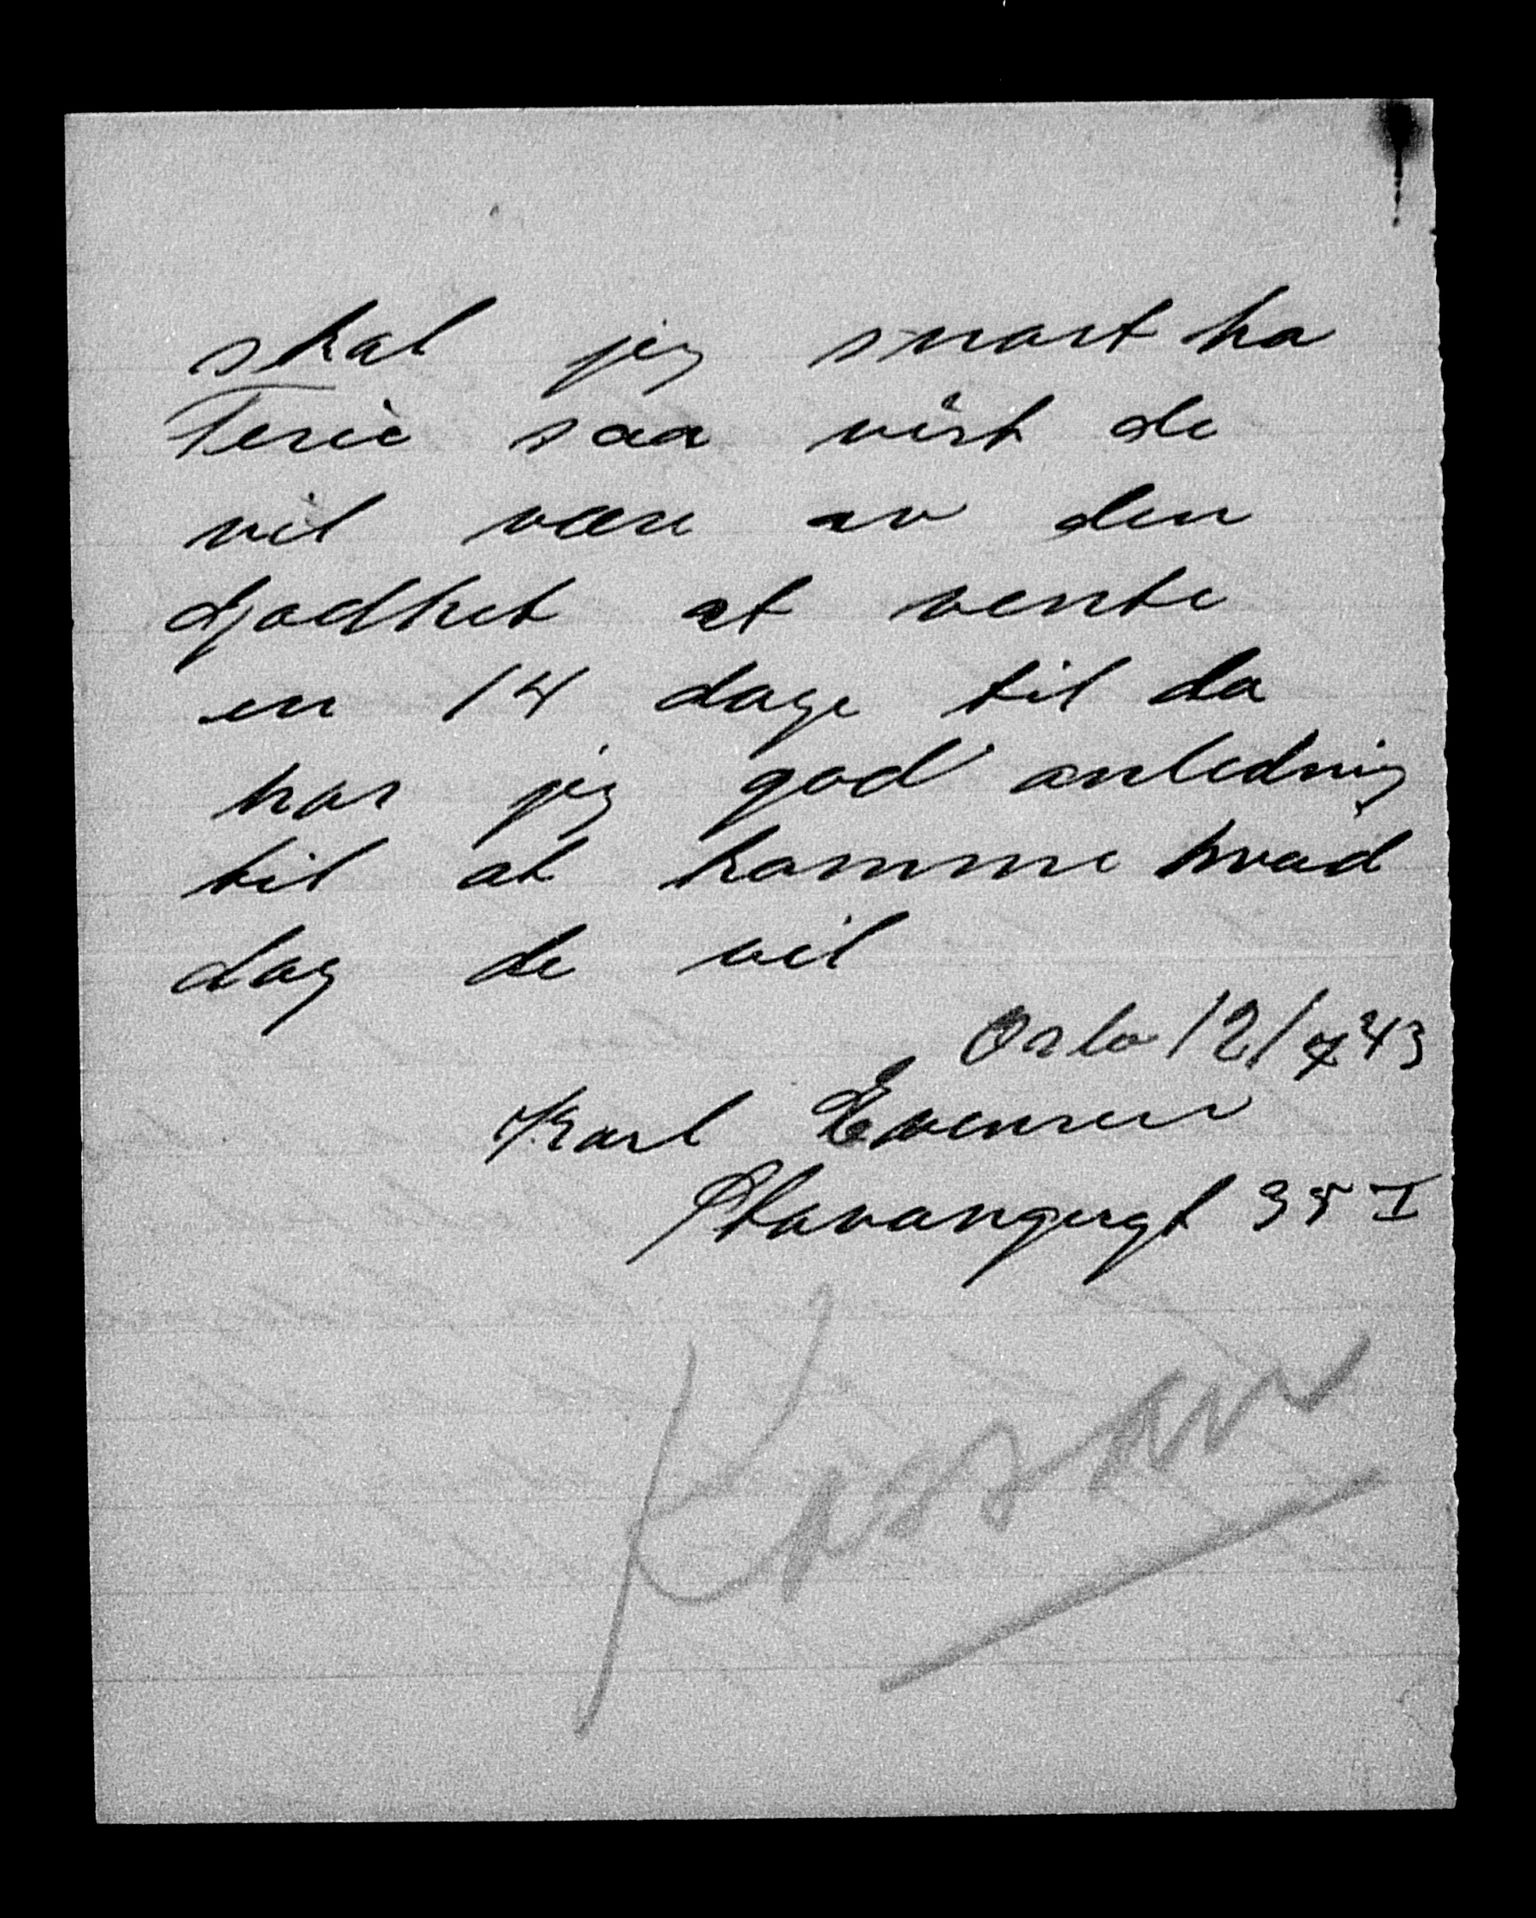 skal jeg snart ha
Ferie saa vist de
vil være av den
Godhet at vente
en 14 dage til da
har jeg god anledning
til at komme hvad
dag de vil
Oslo 12/7 43
Karl Evensen
Stavangergt 35 I